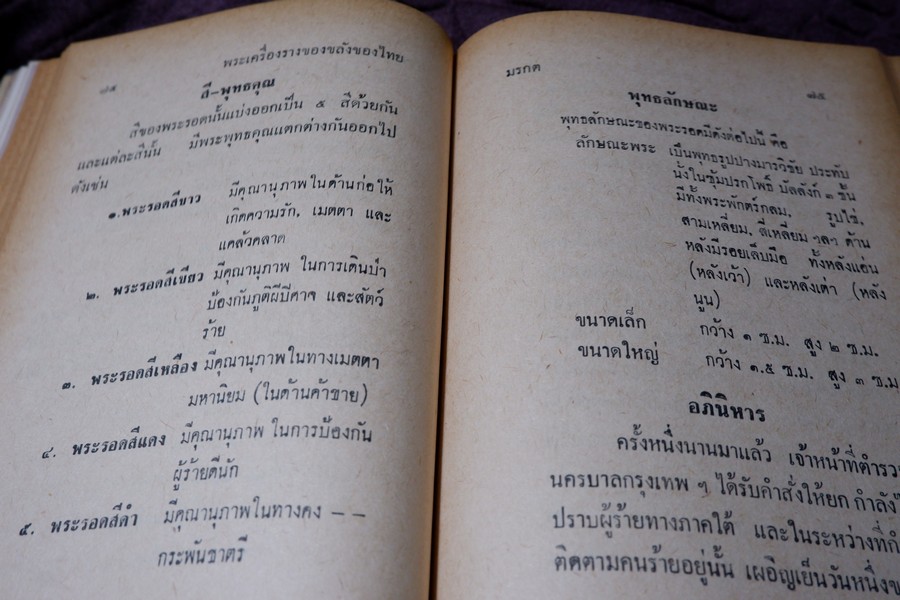 พระเครื่องรางของขลังของไทย
สี-พุทธคุณ
สีของพระรอดนั้นแบ่งออกเป็น ๕ สีด้วยกัน
และแต่ละสีนั้น มีพระพุทธคุณแตกต่างกันออกไป
ดังเช่น
๑.พระรอดสีขาว มีคุณานุภาพในด้านก่อให้
เกิดความรัก, เมตตา และ
แคล้วคลาด
๒. พระรอดสีเขียว มีคุณานุภาพ ในการเดินป่า
ป้องกันภูติผีปีศาจ และสัตว์
ร้าย
๓. พระรอดสีเหลือง มีคุณานุภาพในทางเมตตา
มหานิยม (ในด้านค้าขาย)
๔. พระรอดสีแดง มีคุณานุภาพ ในการป้องกัน
ผู้ร้ายดีนัก
๕. พระรอดสีดำ มีคุณานุภาพในทางคง - -
กระพันชาตรี
มรกต
พุทธลักษณะ
พุทธลักษณะของพระรอดมีดังต่อไปนี้ คือ
ลักษณะพระ เป็นพุทธรูปปางมารวิชัย ประทับ
นั่งในซุ้มปรกโพธิ์ บัลลังก์ ๓ ชั้น
มีทั้งพระพักตร์กลม, รูปไข่,
สามเหลี่ยม, สี่เหลี่ยม ฯลฯ ด้าน
หลังมีรอยเล็บมือ ทั้งหลังแอ่น
(หลังเว้า) และหลังเต่า (หลัง
นูน)
ขนาดเล็ก กว้าง ๑ ซ.ม. สูง ๒ ซ.ม.
ขนาดใหญ่ กว้าง ๑.๕ ซ.ม. สูง ๓ ซ.ม
อภินิหาร
ครั้งหนึ่งนานมาแล้ว เจ้าหน้าที่ตำรวจ
นครบาลกรุงเทพ ฯ ได้รับคำสั่งให้ยก กำลัง
ปราบผู้ร้ายทางภาคใต้ และในระหว่างที่
ติดตามคนร้ายอยู่นั้น เผอิญเย็นวันหนึ่ง